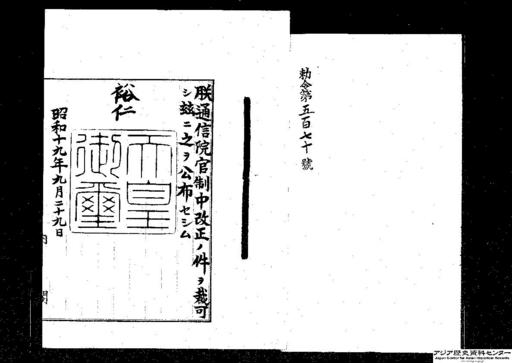 勅令第五百七十號
朕通信院官制中改正ノ件ヲ裁可
シ茲ニ之ヲ公布セシム
裕仁
天皇
御璽
昭和十九年九月二十九日
内閣
アジア歴史資料センター
Japan Center for Asian Historical Records